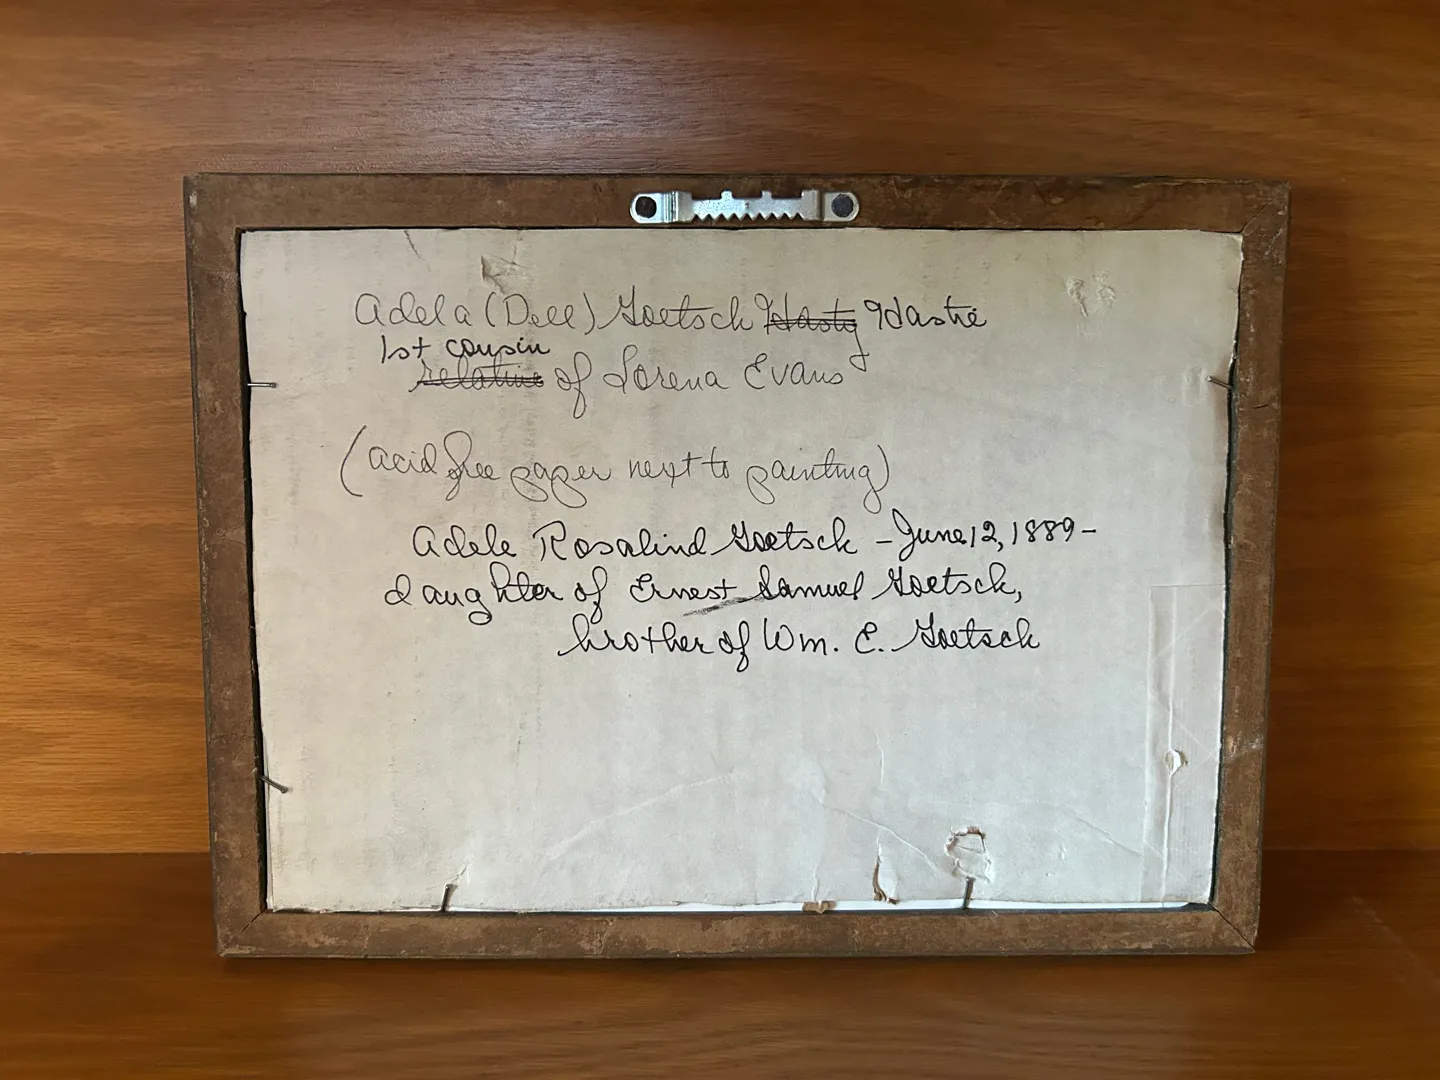 Adela (Dell) Goetsch Hasty Hastie
1st cousin
relative of Lorena Evans
(acid free paper next to painting)
Adele Rosalind Goetsch - June 12, 1889 -
daughter of Ernest Samuel Goetsch,
brother of Wm. E. Goetsch